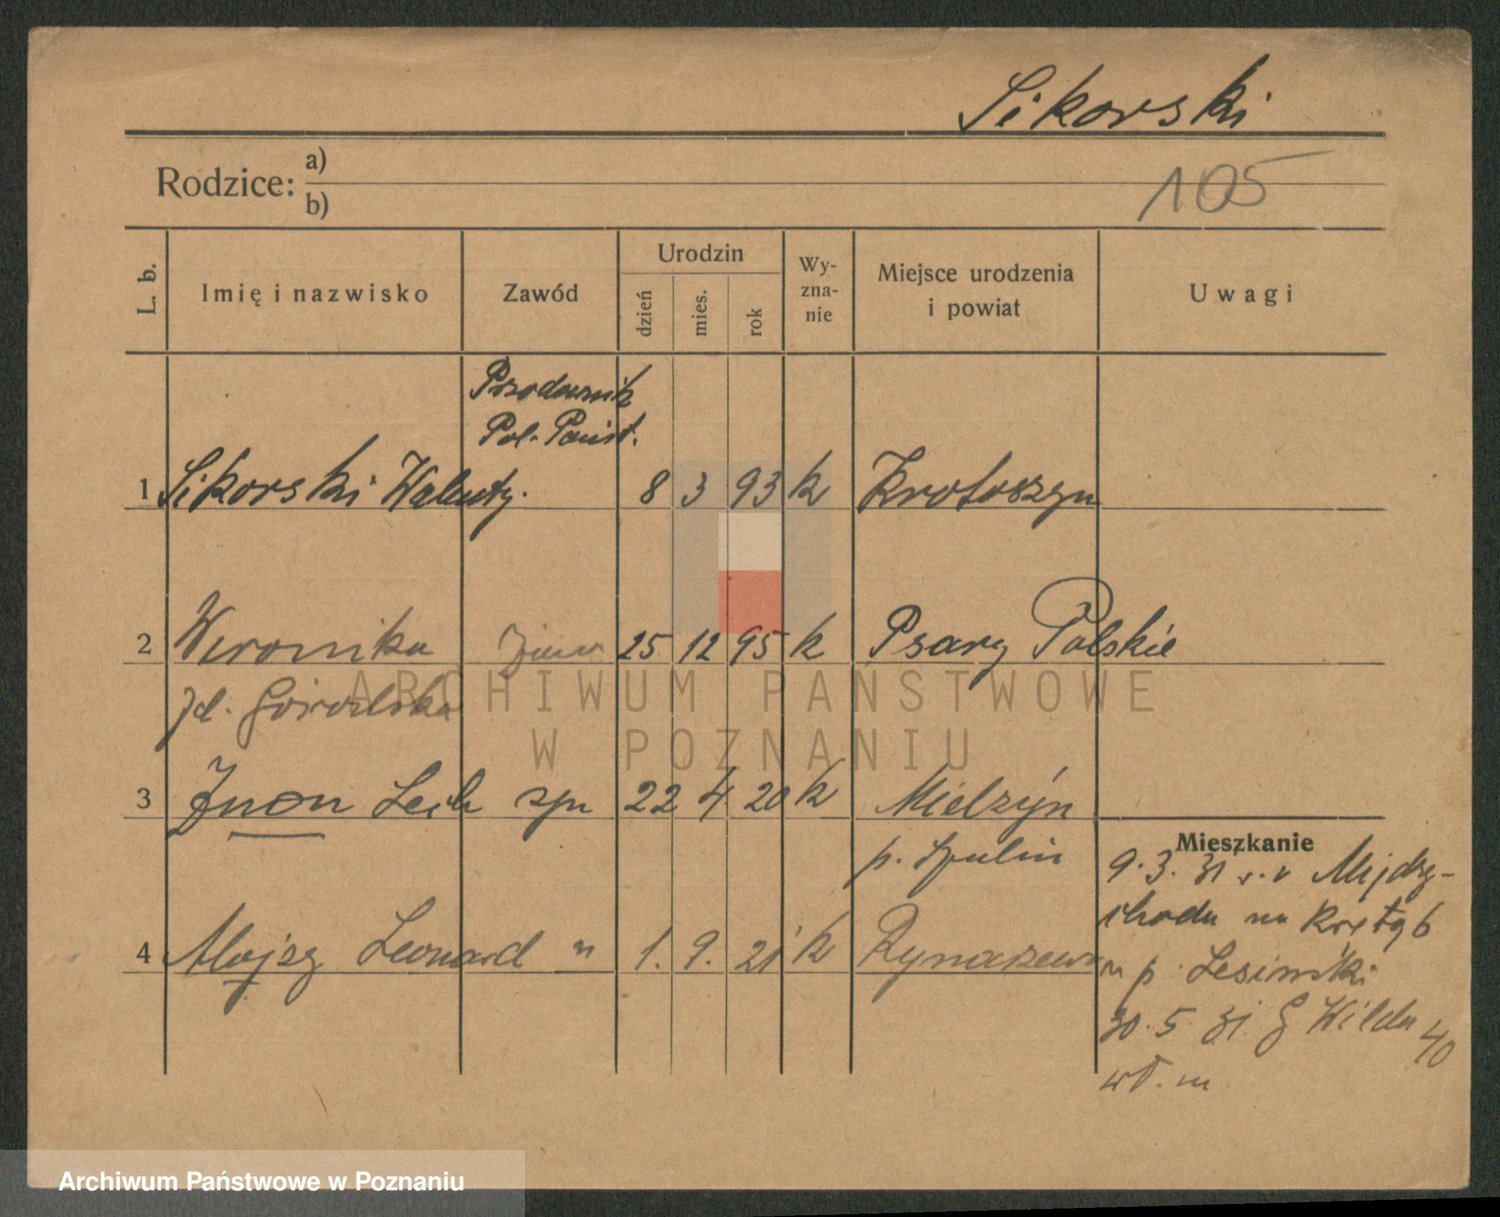 Sikorski
Rodzice: a)
b)
105
L. b.
Imię i nazwisko
Zawód
Urodzin
dzień
mies.
rok
Wy-
zna-
nie
Miejsce urodzenia
i powiat
Uwagi
Przodownik
Pol. Państ.
1 Sikorski Walenty. 8 3 93 k Krotoszyn
2 Weronika żona 25 12 95 k Psary Polskie
zd. Góralska
3 Zenon Lech syn 22 4 20 k Mielżyn
p.
4 Alojzy Leonard " 1. 9. 21 k
Mieszkanie
9. 3. 31 Między-
chodu na Krętą 6
p. Lesiński
30. 5. 31. G Wilda 40
ARCHIWUM PAŃSTWOWE
W POZNANIU
Archiwum Państwowe w Poznaniu